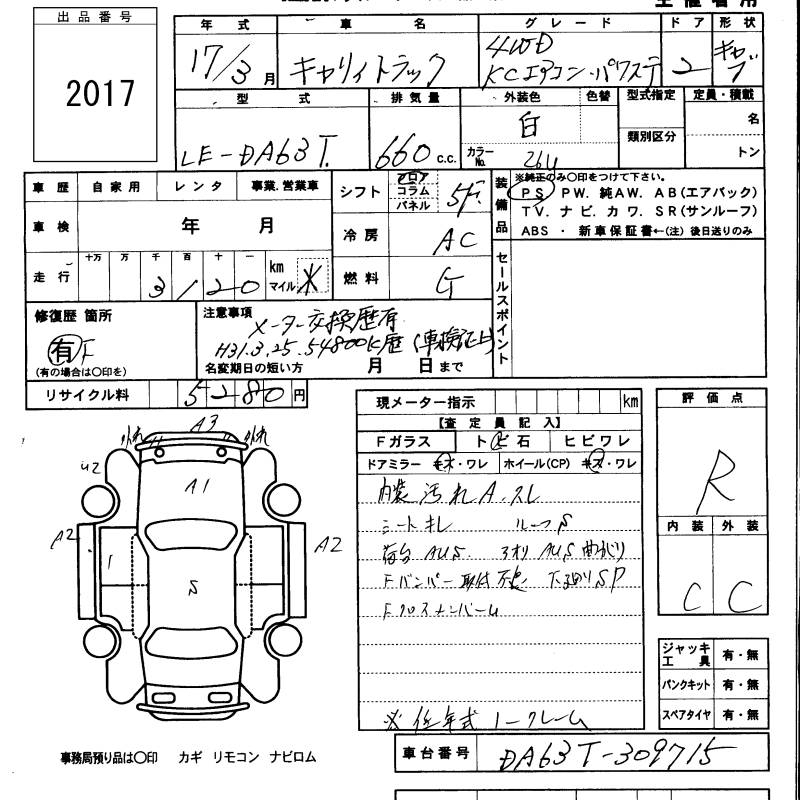 出品番号
2017
年式 車名 グレード ドア 形状
17/3月 キャリイトラック 4WD KCエアコン・パワステ 2 キャブ
型式 排気量 外装色 色替 型式指定 定員・積載
LE-DA63T. 660 c.c. 白 名
カラーNo. 26U 類別区分 トン
車歴 自家用 レンタ 事業.営業車
シフト フロア コラム パネル 5F.
装備品
※純正のみ〇印をつけて下さい。
PS PW. 純AW. AB(エアバック)
TV. ナビ. カワ. SR(サンルーフ)
ABS ・ 新車保証書←(注) 後日送りのみ
車検 年 月
冷房 AC
走行 十万 万 千 百 十 一 km マイル
3 1 2 0
燃料 G
セールスポイント
修復歴 箇所
有 F
(有の場合は〇印を)
注意事項
メーター交換歴有
H31.3.25.54800K歴 (車検証上)
名変期日の短い方 月 日まで
リサイクル料 5280円
現メーター指示 km
【査定員記入】
Fガラス トビ石 ヒビワレ
ドアミラー キズ・ワレ ホイール(CP) キズ・ワレ
内装 汚れ A.スレ
シートキレ ルーフS
荷台 AUS 3オリ AUS 曲がり
Fバンパー取付 下廻りSP
Fクロスメンバーム
※低年式 ノークレーム
評価点
R
内装 外装
C C
A3
A1
U2
A2
1
S
A2
ジャッキ工具 有・無
パンクキット 有・無
スペアタイヤ 有・無
事務局預り品は〇印 カギ リモコン ナビロム
車台番号 DA63T-309715